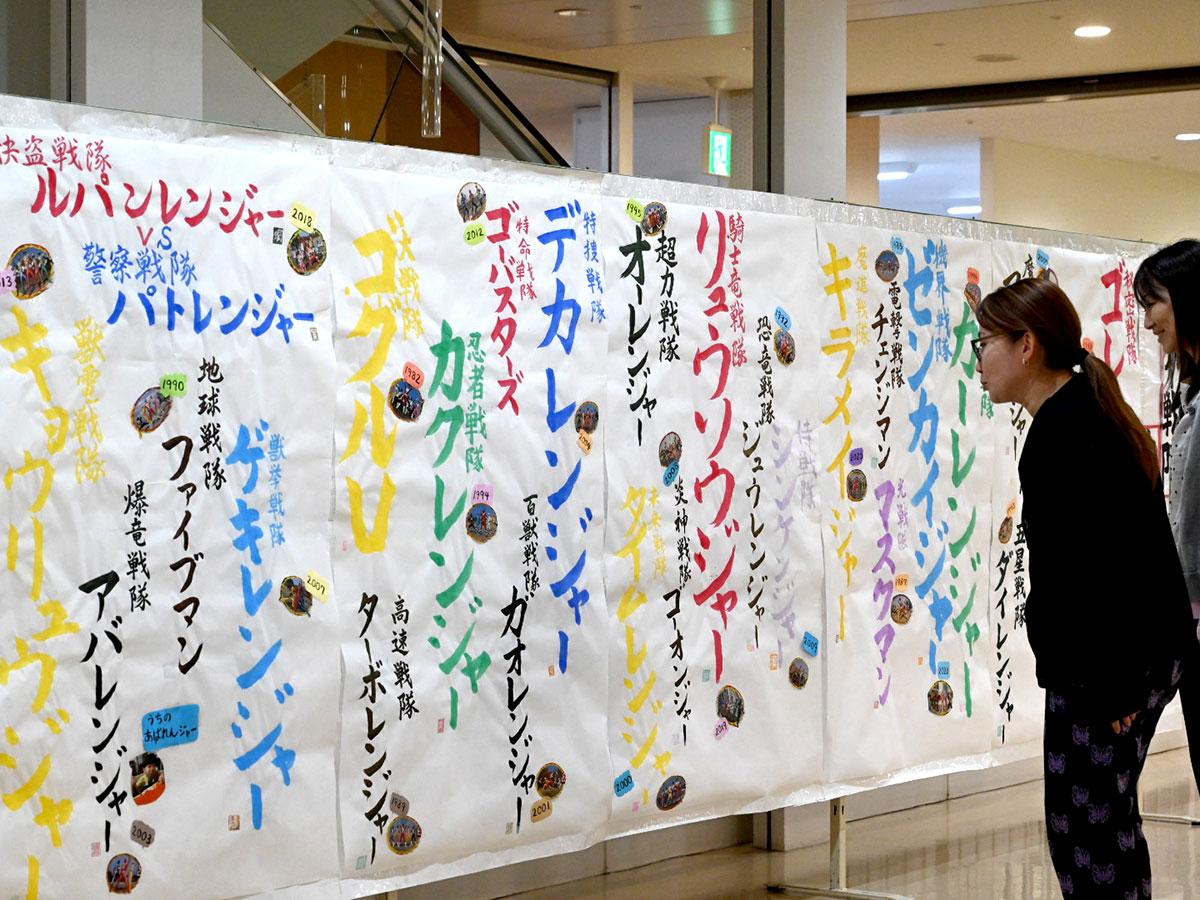 快盗戦隊
ルパンレンジャー
VS
警察戦隊
パトレンジャー
2018
獣電戦隊
キョウリュウジャー
地球戦隊
ファイブマン
1990
爆竜戦隊
アバレンジャー
うちの
あばれんジャー
2003
獣拳戦隊
ゲキレンジャー
2007
大戦隊
ゴーグルV
1982
高速戦隊
ターボレンジャー
1989
忍者戦隊
カクレンジャー
1994
特命戦隊
ゴーバスターズ
2012
百獣戦隊
ガオレンジャー
2001
特捜戦隊
デカレンジャー
1995
超力戦隊
オーレンジャー
未来戦隊
タイムレンジャー
2000
炎神戦隊
ゴーオンジャー
2008
騎士竜戦隊
リュウソウジャー
2019
恐竜戦隊
ジュウレンジャー
1992
侍戦隊
シンケンジャー
2009
魔進戦隊
キラメイジャー
電撃戦隊
チェンジマン
光戦隊
マスクマン
1987
機界戦隊
ゼンカイジャー
カーレンジャー
五星戦隊
ダイレンジャー
秘密戦隊